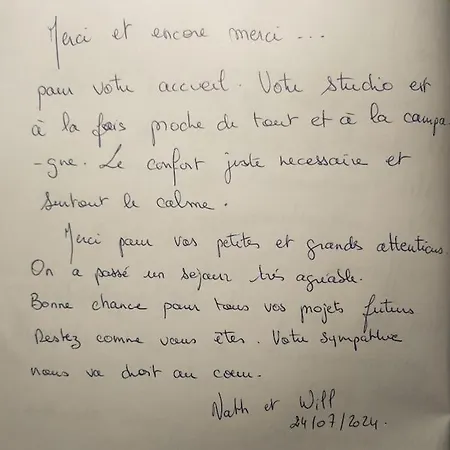 Merci et encore merci ...
pour votre accueil. Votre studio est
à la fois proche de tout et à la campa
-gne. Le confort juste necessaire et
surtout le calme.
Merci pour vos petites et grands attentions.
On a passé un sejour très agréable.
Bonne chance pour tous vos projets futurs
Restez comme vous êtes. Votre sympathie
nous va droit au coeur.
Nath et Will
24/07/2024.